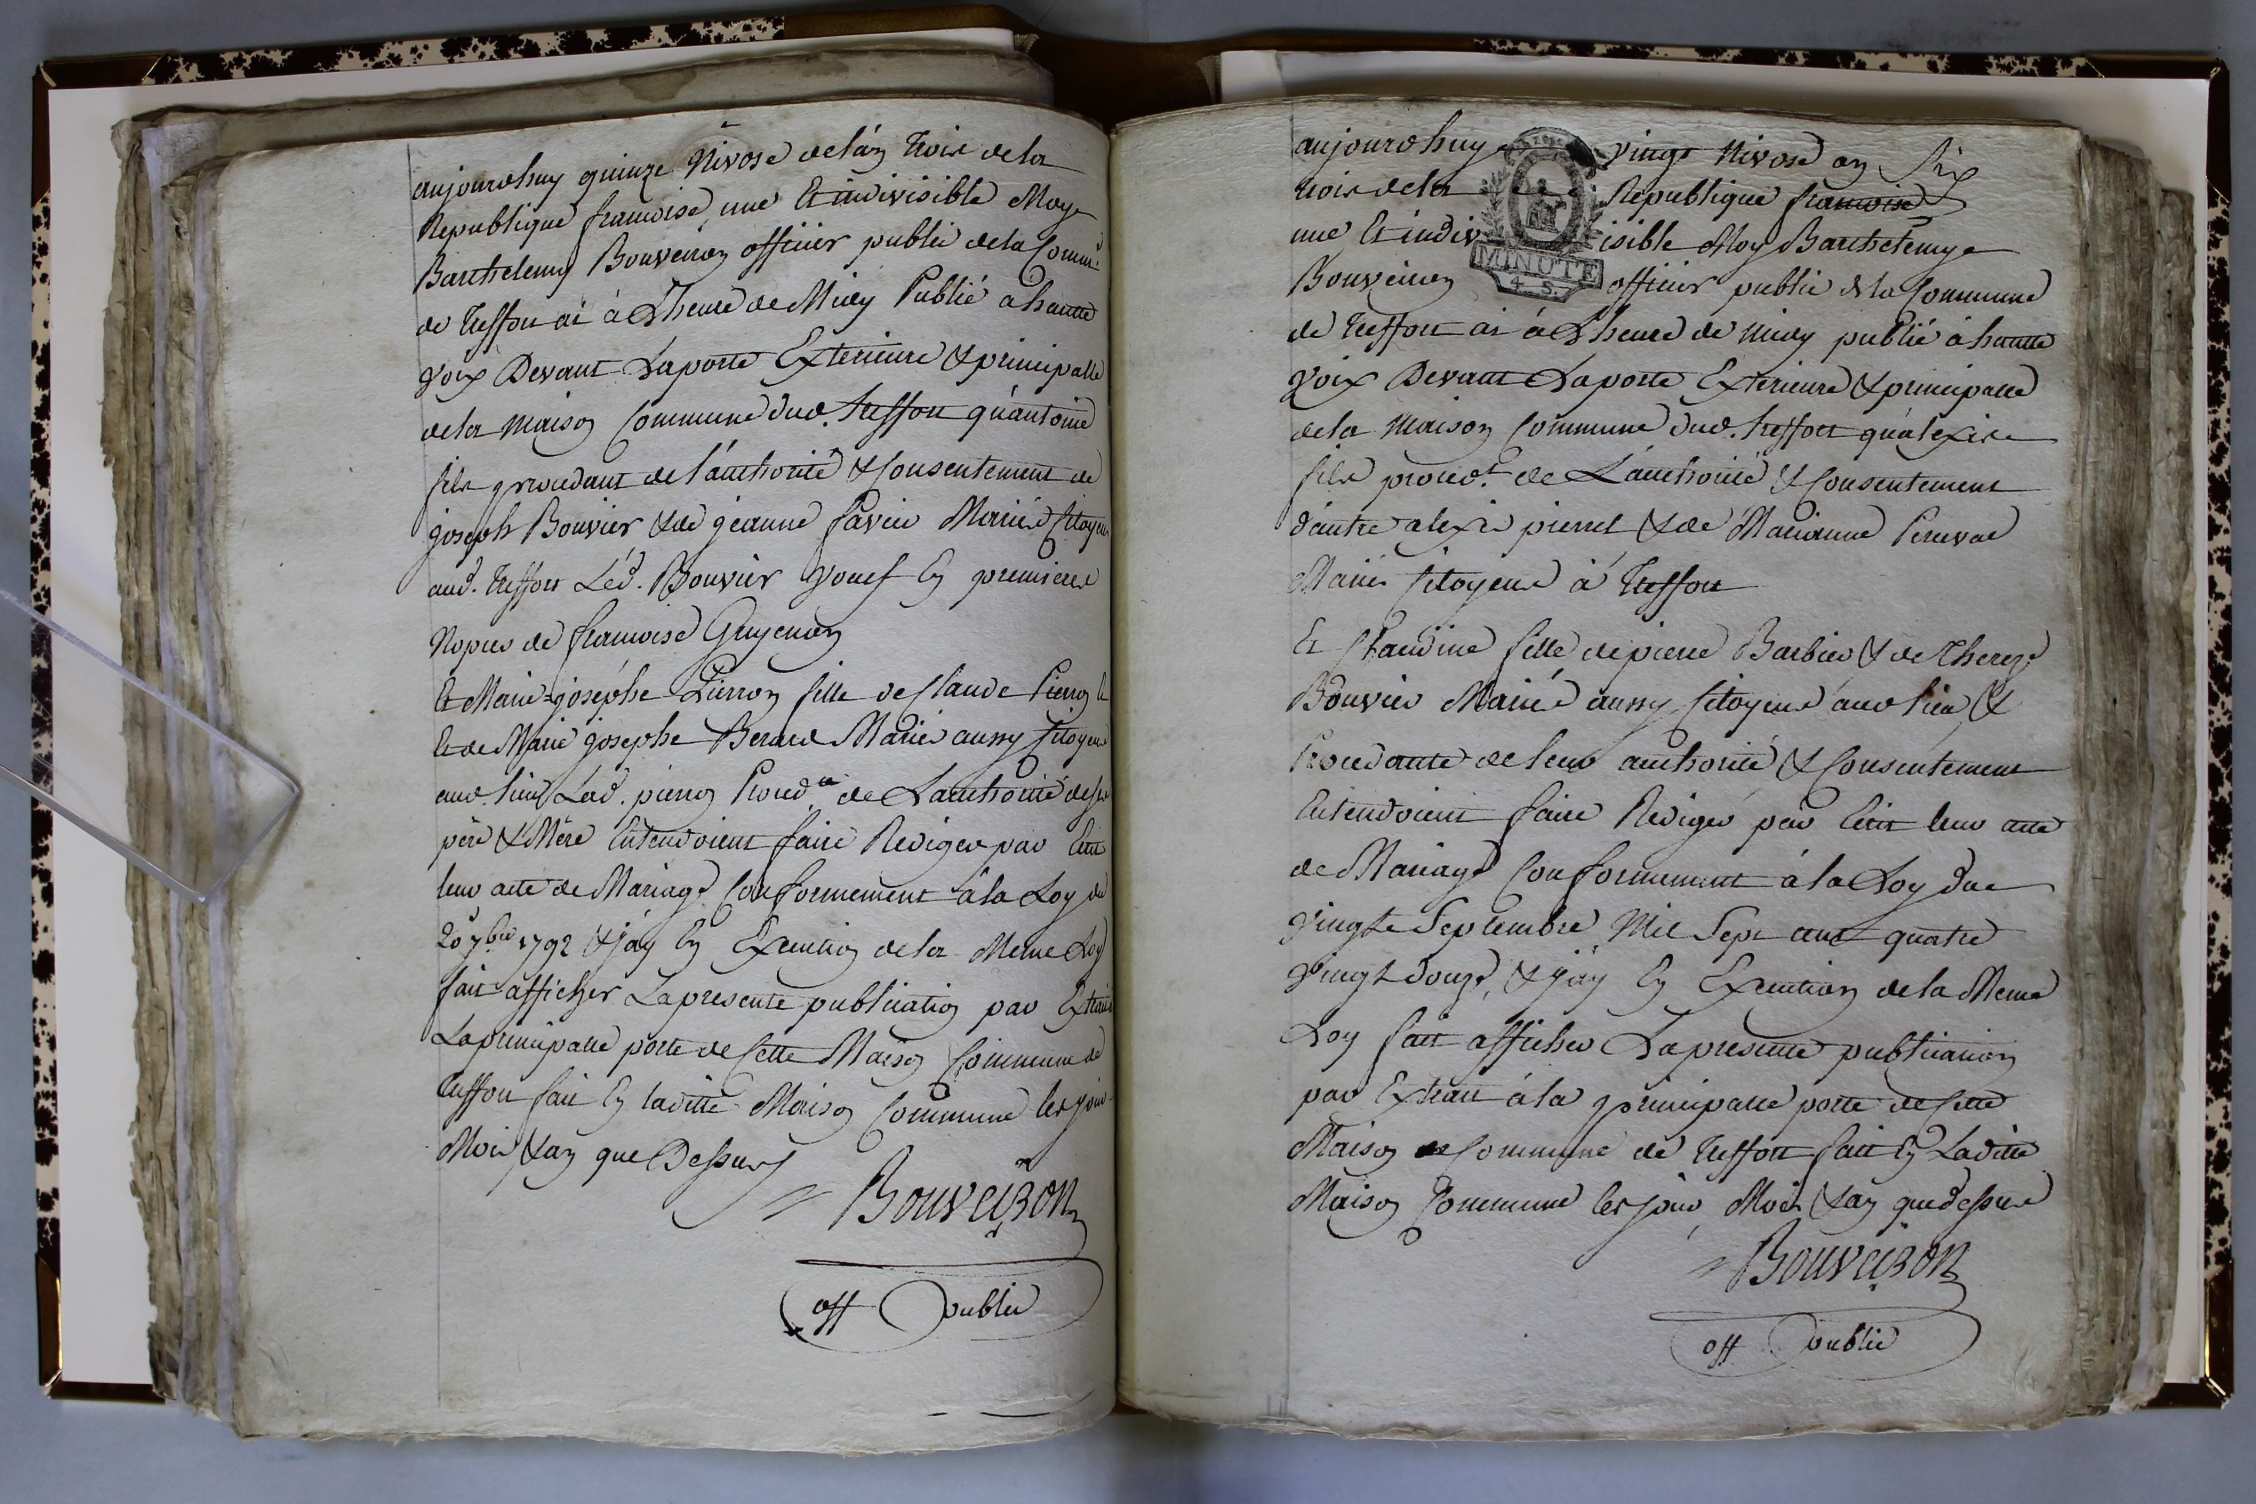 aujourdhuy quinze Nivose de l'an trois de la
Republique francoise, une Et indivisible Moy
Barthelemy Bouveiron officier public de la Comm.e
de treffort ai à L'heure de Midy Publié a haute
voix Devant La porte Exterieure & principalle
de la Maison Commune dud. treffort qu'antoine
fils procedant de l'authorité & Consentement de
joseph Bouvier & de jeanne favier Mariés Citoyens
aud. treffort Led. Bouvier veuf En premieres
Nopces de francoise
Et Marie=josephe Pierron fille de Claude Pierron
Et de Marie josephe Berard Mariés aussy Citoyens
aud. lieu Lad. pierron Proced.te de L'authorité de ses
père & Mère Entendoient faire Rediger par Ecrit
leur acte de Mariage Conformement à la Loy du
20 7bre 1792 & j'ay En Execution de la Meme Loy
fait afficher La presente publication par Extrait
La principalle porte de Cette Maison Commune de
treffort fait En laditte Maison Commune les jour
Mois & an que Dessus
BOUVEIRON
off public
aujourdhuy vingt Nivose an Six
trois de la Republique francoise
une Et indivisible Moy Barthelemy
Bouveiron officier public de la Commune
MINUTE
4. S.
de treffort ai à L'heure de midy publié à haute
voix Devant La porte Exterieure & principalle
de la Maison Commune dud. treffort qu'alexis
fils proced.t de L'authorité & Consentement
d'autre alexis pierret & de Marianne Perceval
Mariés Citoyens à treffort
Et Claudine fille de pierre Barbier & de Therese
Bouvier Mariés aussy Citoyens aud lieu &
Procedante de leur authorité & Consentement
Entendoient faire Rediger par Ecrit leur acte
de Mariage Conformement à la Loy du
vingt Septembre Mil Sept cent quatre
vingt douze, & j'ay En Execution de la Meme
Loy fait afficher La presente publication
par Extrait à la principalle porte de Cette
Maison Commune de treffort fait En Laditte
Maison Commune les jour Mois & an que dessus
BOUVEIRON
off public